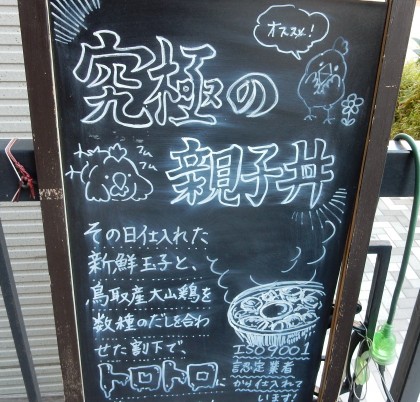 オススメ!
究極の
親子丼
フムフム
その日仕入れた
新鮮玉子と、
鳥取産大山鶏を
数種のだしを合わ
せた割下で、
トロトロに
ISO9001
認定業者
から仕入れて
います!